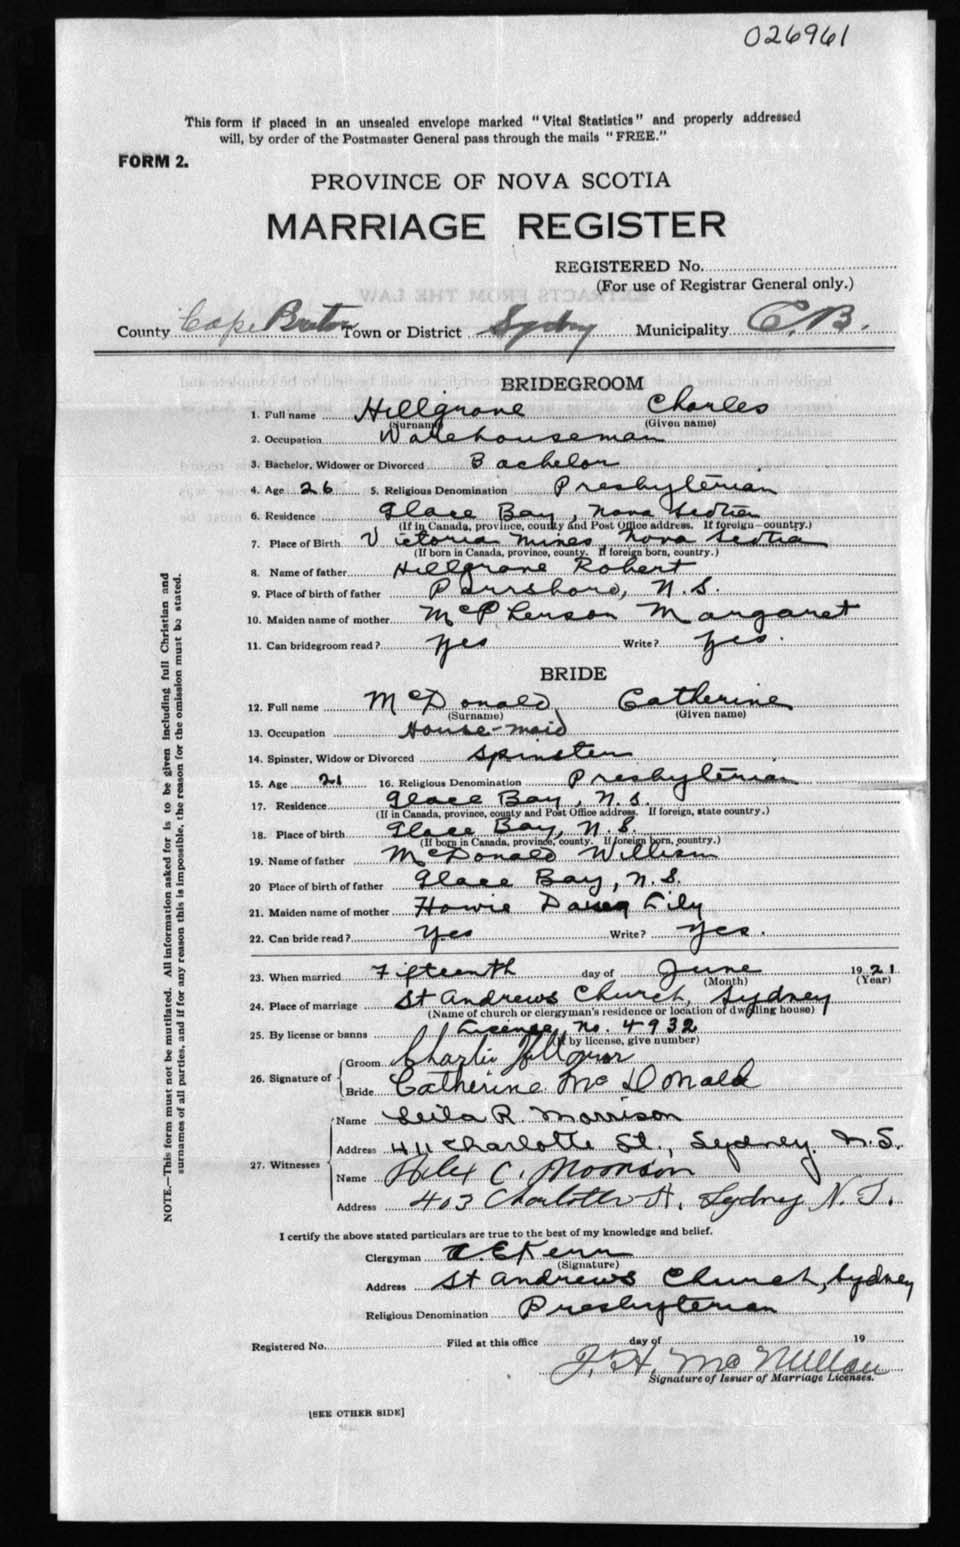 026961
This form if placed in an unsealed envelope marked "Vital Statistics" and properly addressed
will, by order of the Postmaster General pass through the mails "FREE."
FORM 2.
PROVINCE OF NOVA SCOTIA
MARRIAGE REGISTER
REGISTERED No.
(For use of Registrar General only.)
County Cape Breton Town or District Sydney Municipality C.B.
BRIDEGROOM
1. Full name Hillgrove Charles
(Surname) (Given name)
2. Occupation Warehouseman
3. Bachelor, Widower or Divorced Bachelor
4. Age 26 5. Religious Denomination Presbyterian
6. Residence Glace Bay, Nova Scotia
(If in Canada, province, county and Post Office address. If foreign—country.)
7. Place of Birth Victoria Mines, Nova Scotia
(If born in Canada, province, county. If foreign born, country.)
8. Name of father Hillgrove Robert
9. Place of birth of father Parrsboro, N.S.
10. Maiden name of mother McPherson Margaret
11. Can bridegroom read? Yes Write? Yes.
BRIDE
12. Full name McDonald Catherine
(Surname) (Given name)
13. Occupation House-maid
14. Spinster, Widow or Divorced Spinster
15. Age 21 16. Religious Denomination Presbyterian
17. Residence Glace Bay, N.S.
(If in Canada, province, county and Post Office address. If foreign, state country.)
18. Place of birth Glace Bay, N.S.
(If born in Canada, province, county. If foreign born, country.)
19. Name of father McDonald William
20 Place of birth of father Glace Bay, N.S.
21. Maiden name of mother Howie Lily
22. Can bride read? Yes Write? Yes.
23. When married Fifteenth day of June 1921
(Month) (Year)
24. Place of marriage St Andrews Church, Sydney
(Name of church or clergyman's residence or location of dwelling house)
25. By license or banns License, no. 4932
(If by license, give number)
26. Signature of Groom Charlie Hillgrove
Bride Catherine McDonald
27. Witnesses Name Leila R. Morrison
Address 411 Charlotte St., Sydney. N.S.
Name Alex C. Morrison
Address 403 Charlotte St. Sydney N.S.
I certify the above stated particulars are true to the best of my knowledge and belief.
Clergyman
(Signature)
Address St Andrews Church, Sydney
Religious Denomination Presbyterian
Registered No. Filed at this office day of 19
J. H. McMillan
Signature of Issuer of Marriage Licenses.
[SEE OTHER SIDE]
NOTE.—This form must not be mutilated. All information asked for is to be given including full Christian and
surnames of all parties, and if for any reason this is impossible, the reason for the omission must be stated.